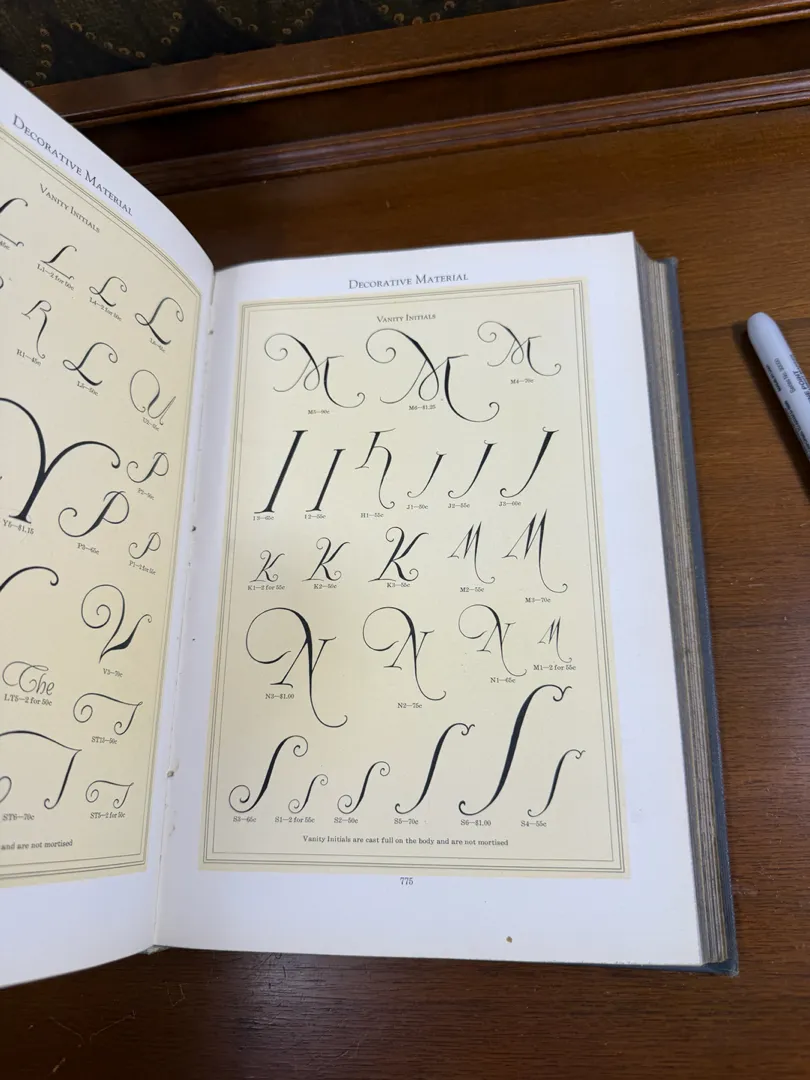 DECORATIVE MATERIAL
VANITY INITIALS
L
L1—2 for 50c
L
L4—2 for 50c
L
R
R1—45c
L
L5—50c
U
Y
Y5—$1.15
P
P
P2—65c
P
V
V3—70c
The
LT5—2 for 50c
ST
ST
ST6—70c
ST
and are not mortised
DECORATIVE MATERIAL
VANITY INITIALS
M M M
M5—90c M6—$1.25 M4—70c
I I H J J J
I3—65c I2—55c H1—55c J1—50c J2—55c J3—60c
K K K M M
K1—2 for 55c K2—50c K3—55c M2—55c M3—70c
N N N M
N3—$1.00 N2—75c N1—65c M1—2 for 55c
S S S S S S
S3—65c S1—2 for 55c S2—50c S5—70c S6—$1.00 S4—55c
Vanity Initials are cast full on the body and are not mortised
775